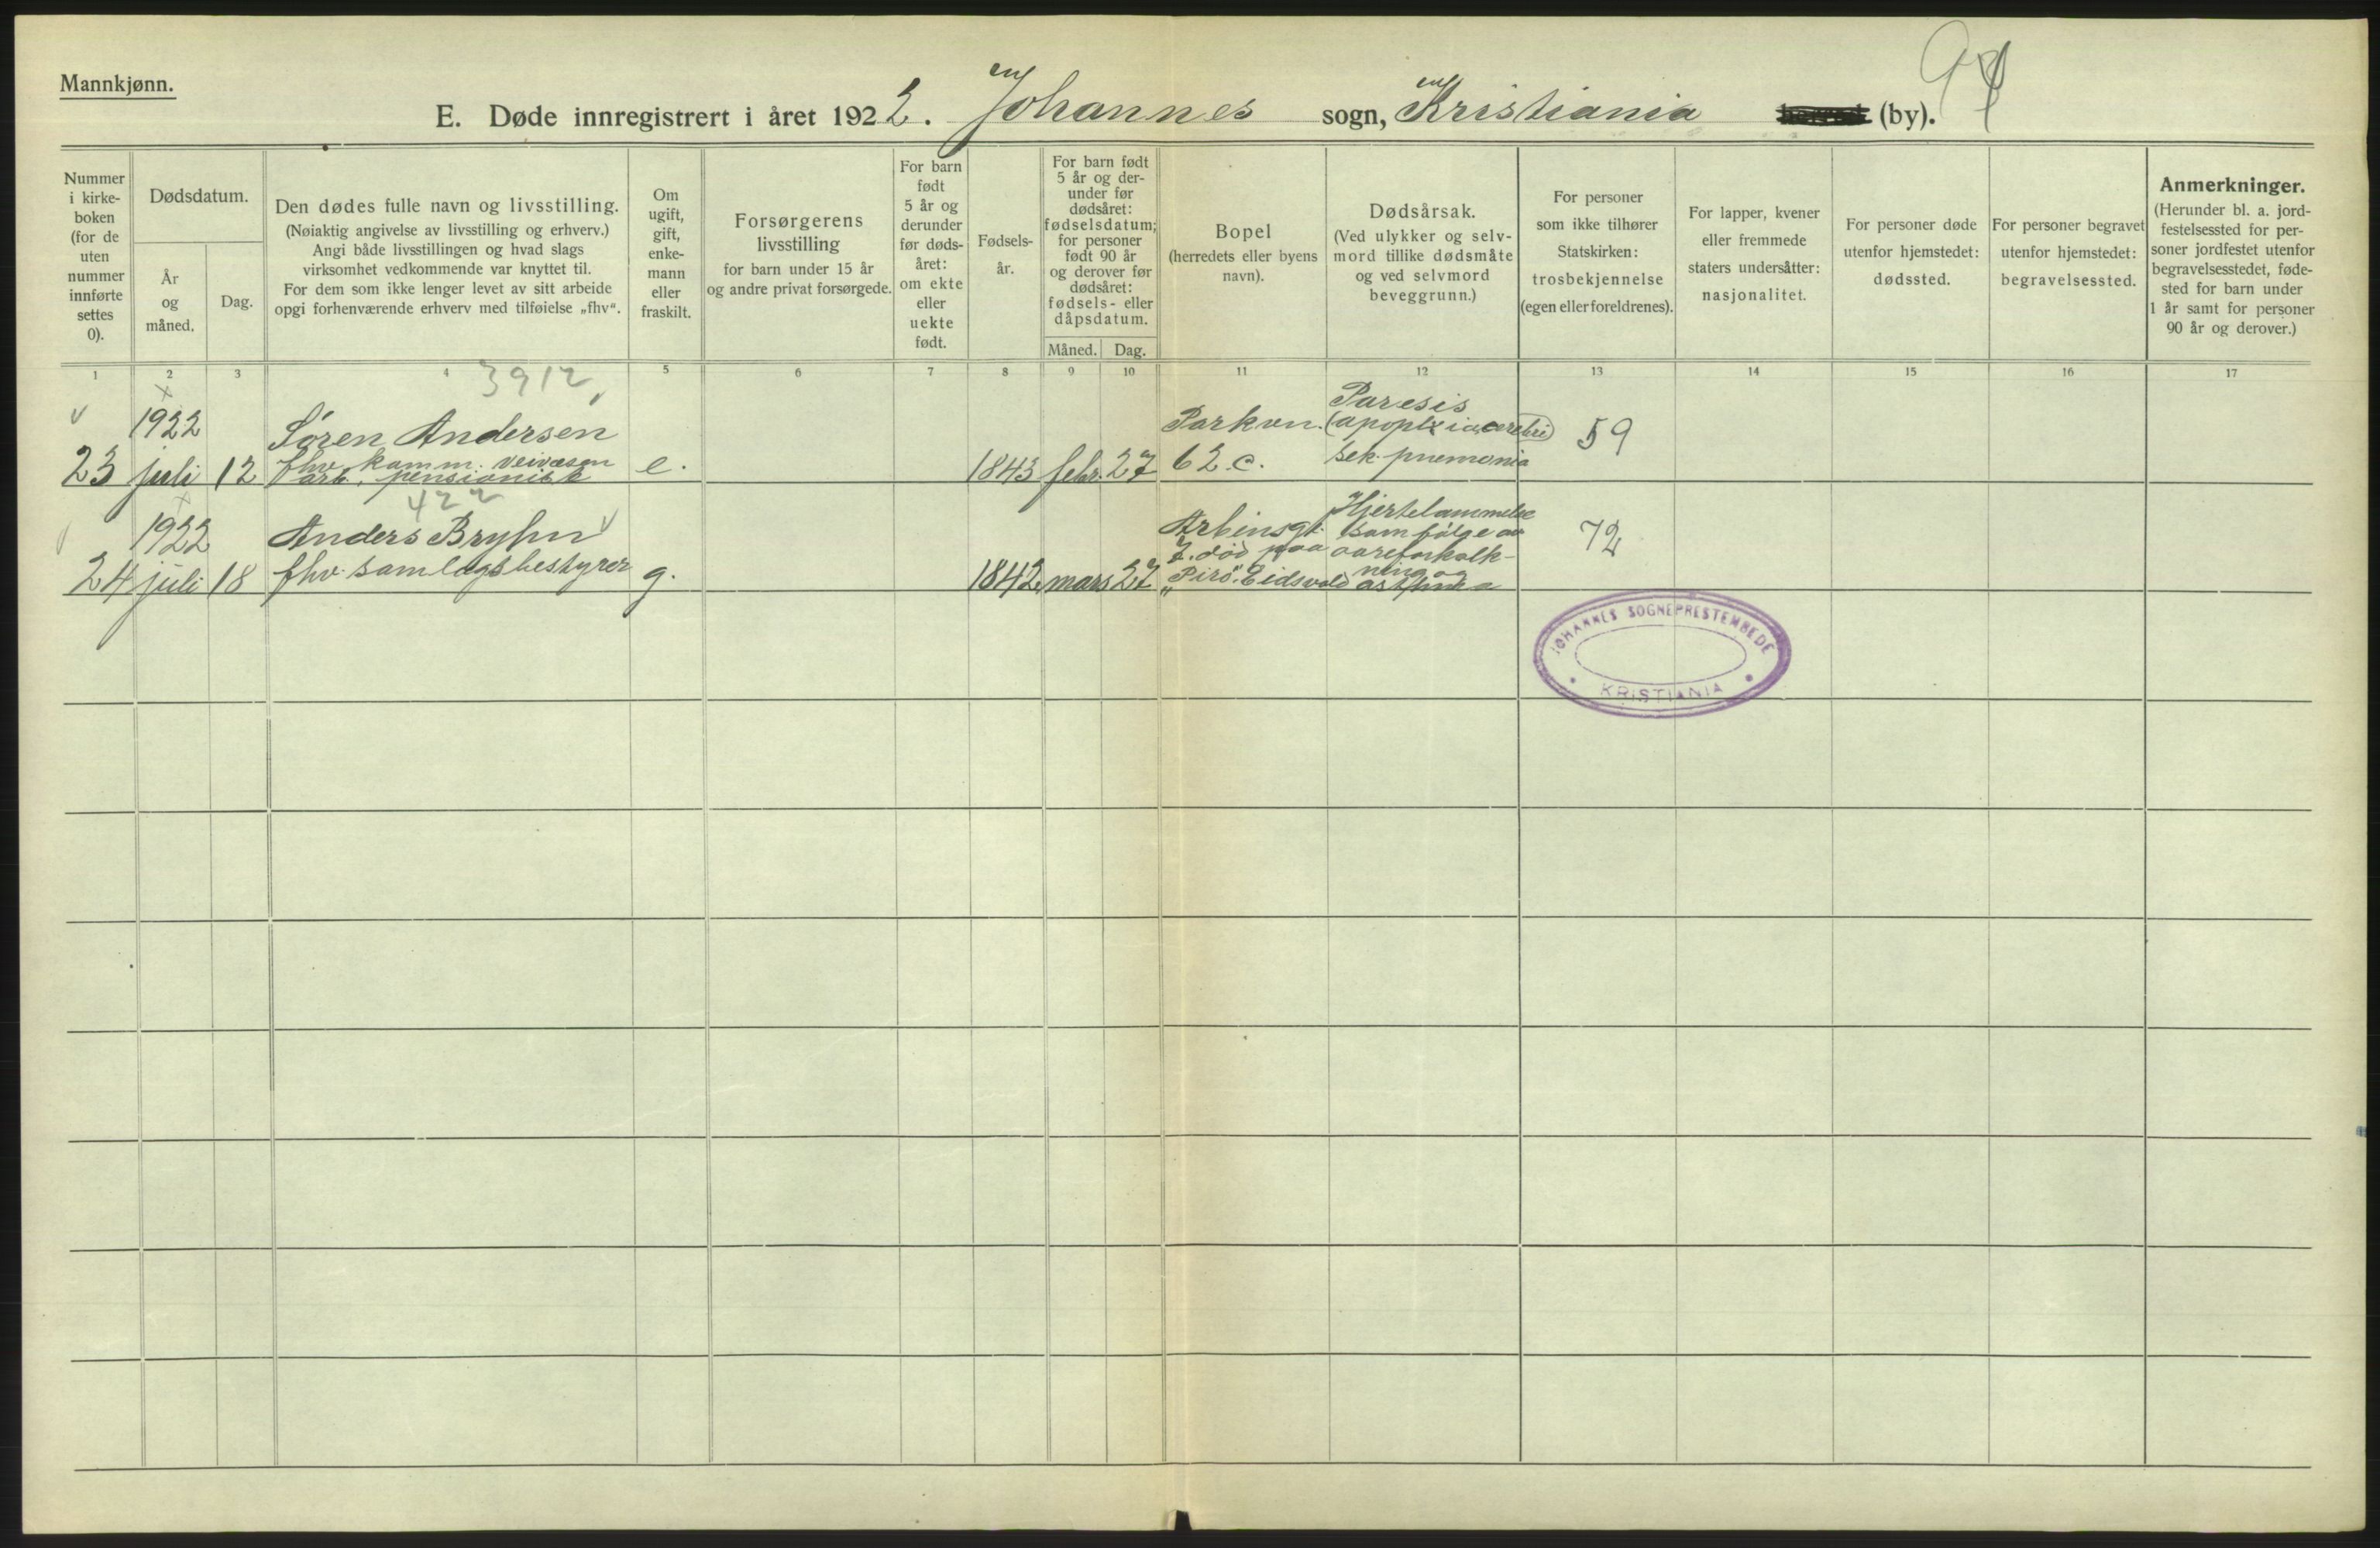 Mannkjønn.
E. Døde innregistrert i året 1922. Johannes sogn, Kristiania herred (by).
Nummer i kirke-boken (for de uten nummer innførte settes 0).
Dødsdatum.
År og måned.
Dag.
Den dødes fulle navn og livsstilling.
(Nøiaktig angivelse av livsstilling og erhverv.)
Angi både livsstillingen og hvad slags
virksomhet vedkommende var knyttet til.
For dem som ikke lenger levet av sitt arbeide
opgi forhenværende erhverv med tilføielse „fhv“.
Om ugift, gift, enke-mann eller fraskilt.
Forsørgerens
livsstilling
for barn under 15 år
og andre privat forsørgede.
For barn født 5 år og derunder før døds-året: om ekte eller uekte født.
Fødsels-år.
For barn født
5 år og der-
under før
dødsåret:
fødselsdatum;
for personer
født 90 år
og derover før
dødsåret:
fødsels- eller
dåpsdatum.
Måned. Dag.
Bopel
(herredets eller byens
navn).
Dødsårsak.
(Ved ulykker og selv-
mord tillike dødsmåte
og ved selvmord
beveggrunn.)
For personer
som ikke tilhører
Statskirken:
trosbekjennelse
(egen eller foreldrenes).
For lapper, kvener
eller fremmede
staters undersåtter:
nasjonalitet.
For personer døde
utenfor hjemstedet:
dødssted.
For personer begravet
utenfor hjemstedet:
begravelsessted.
Anmerkninger.
(Herunder bl. a. jord-
festelsessted for per-
soner jordfestet utenfor
begravelsesstedet, føde-
sted for barn under
1 år samt for personer
90 år og derover.)
1 2 3 4 5 6 7 8 9 10 11 12 13 14 15 16 17
3912
23 1922 juli 12
Søren Andersen
fhv. komm. veivæsen
arb. pensionist
e.
1843 febr. 27
Parkvn.
62 c.
Paresis
(apoplexia cerebri)
sek. pnemonia
59
422
24 1922 juli 18
Anders Bryhn
fhv. samlagsbestyrer
g.
1842 mars 27
Arbinsgt.
7. død paa
„Pirö“. Eidsvold
Hjertelammelse
som følge av
aareforkalk-
ning og
asthma
72
JOHANNES SOGNEPRESTEMBEDE
KRISTIANIA